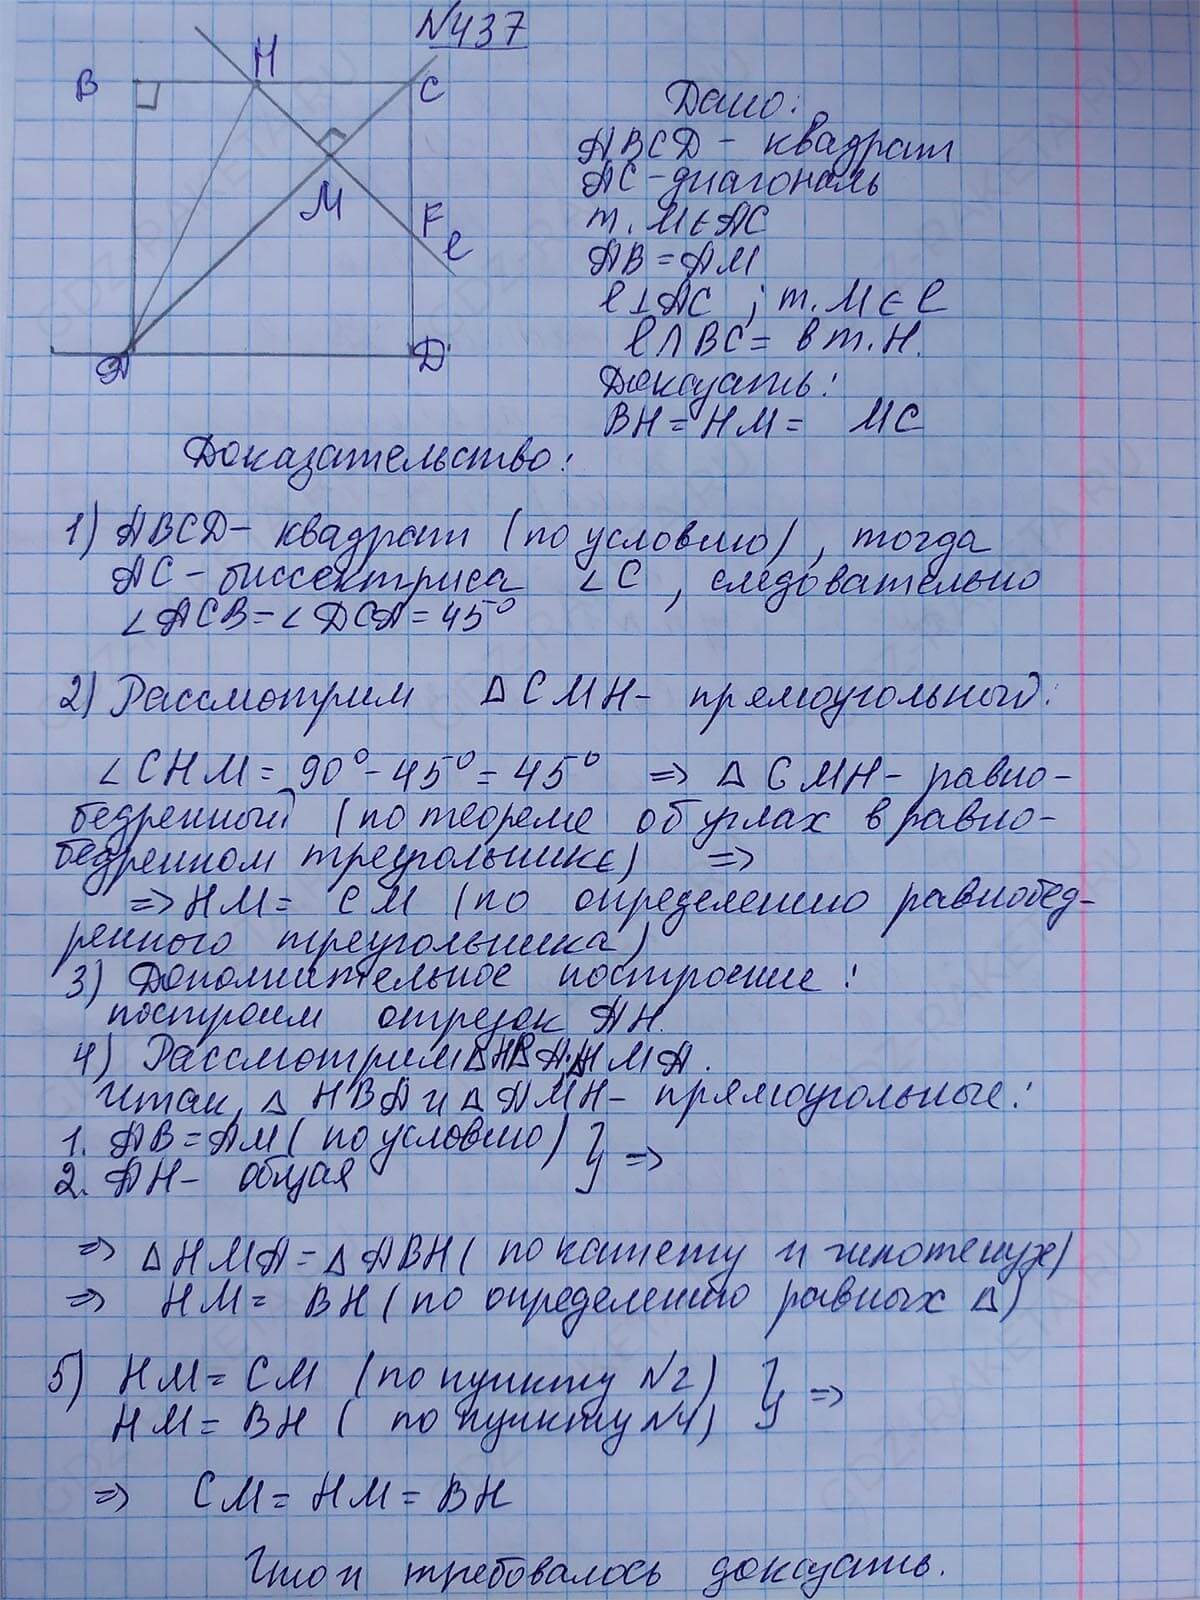 №437
B
H
C
M
F
l
A
D
Дано:
ABCD - квадрат
AC - диагональ
т. M ∈ AC
AB = AM
l ⊥ AC ; т. M ∈ l
l ∩ BC = в т. H.
Доказать:
BH = HM = MC
Доказательство:
1) ABCD - квадрат (по условию), тогда
AC - биссектриса ∠C, следовательно
∠ACB = ∠DCA = 45°
2) Рассмотрим △CMH - прямоугольный:
∠CHM = 90° - 45° = 45° ⇒ △CMH - равно-
бедренный (по теореме об углах в равно-
бедренном треугольнике) ⇒
⇒ HM = CM (по определению равнобед-
ренного треугольника)
3) Дополнительное построение:
построим отрезок AH.
4) Рассмотрим △HBA; △HMA.
Итак, △HBA и △AMH - прямоугольные:
1. AB = AM (по условию) } ⇒
2. AH - общая
⇒ △HMA = △ABH (по катету и гипотенузе)
⇒ HM = BH (по определению равных △)
5) HM = CM (по пункту №2) } ⇒
HM = BH (по пункту №4)
⇒ CM = HM = BH
Что и требовалось доказать.